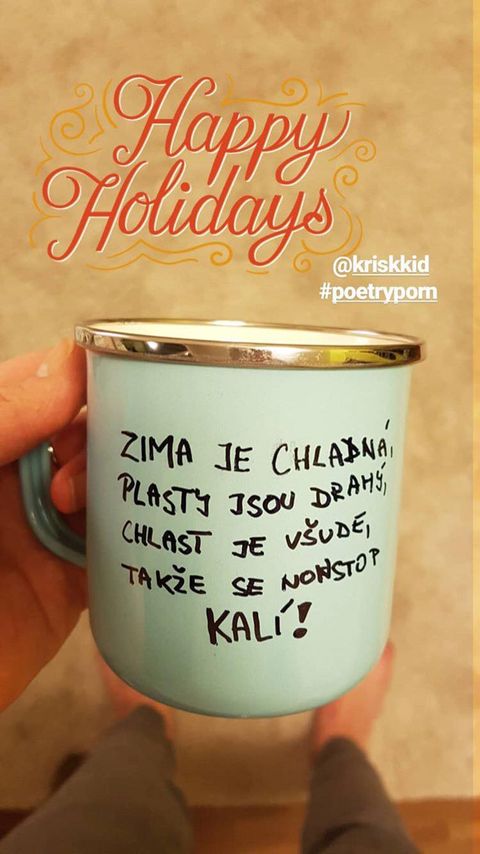 Happy
Holidays
@kriskkid
#poetryporn
ZIMA JE CHLADNÁ,
PLASTY JSOU DRAHÝ,
CHLAST JE VŠUDE,
TAKŽE SE NONSTOP
KALÍ!